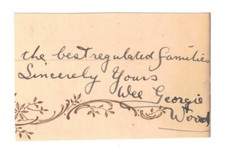 the best regulated families
Sincerely Yours
Wee Georgie
Wood